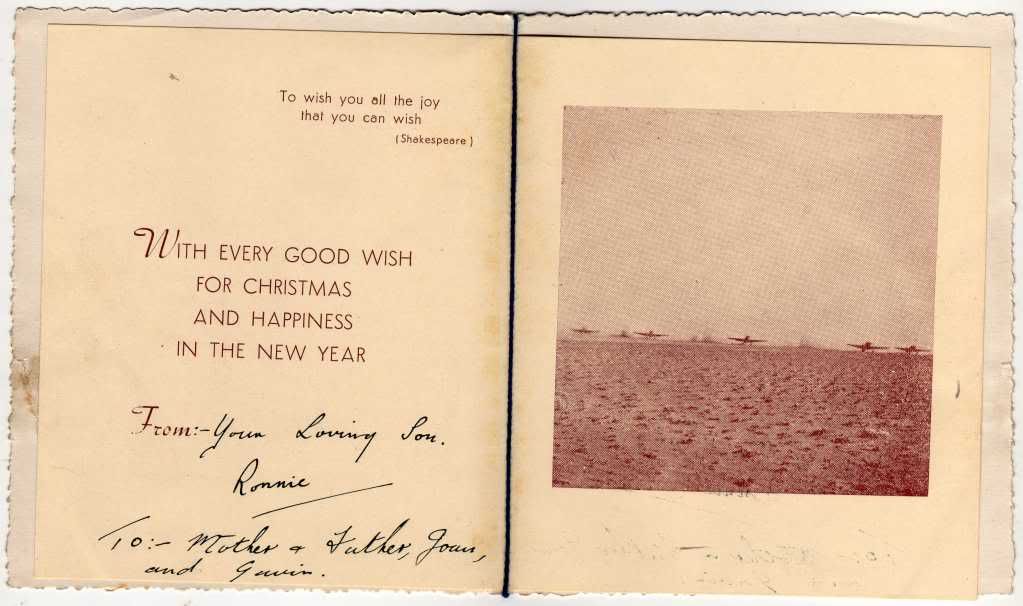 To wish you all the joy
that you can wish
(Shakespeare)
WITH EVERY GOOD WISH
FOR CHRISTMAS
AND HAPPINESS
IN THE NEW YEAR
From:- Your Loving Son.
Ronnie
To:- Mother & Father, Joan,
and Gavin.